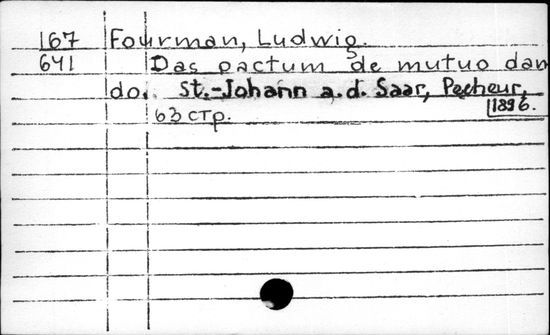 167 Fourman, Ludwig.
641 Das pactum de mutuo dan
do. St.-Johann a.d. Saar, Pecheur,
1896.
63 стр.